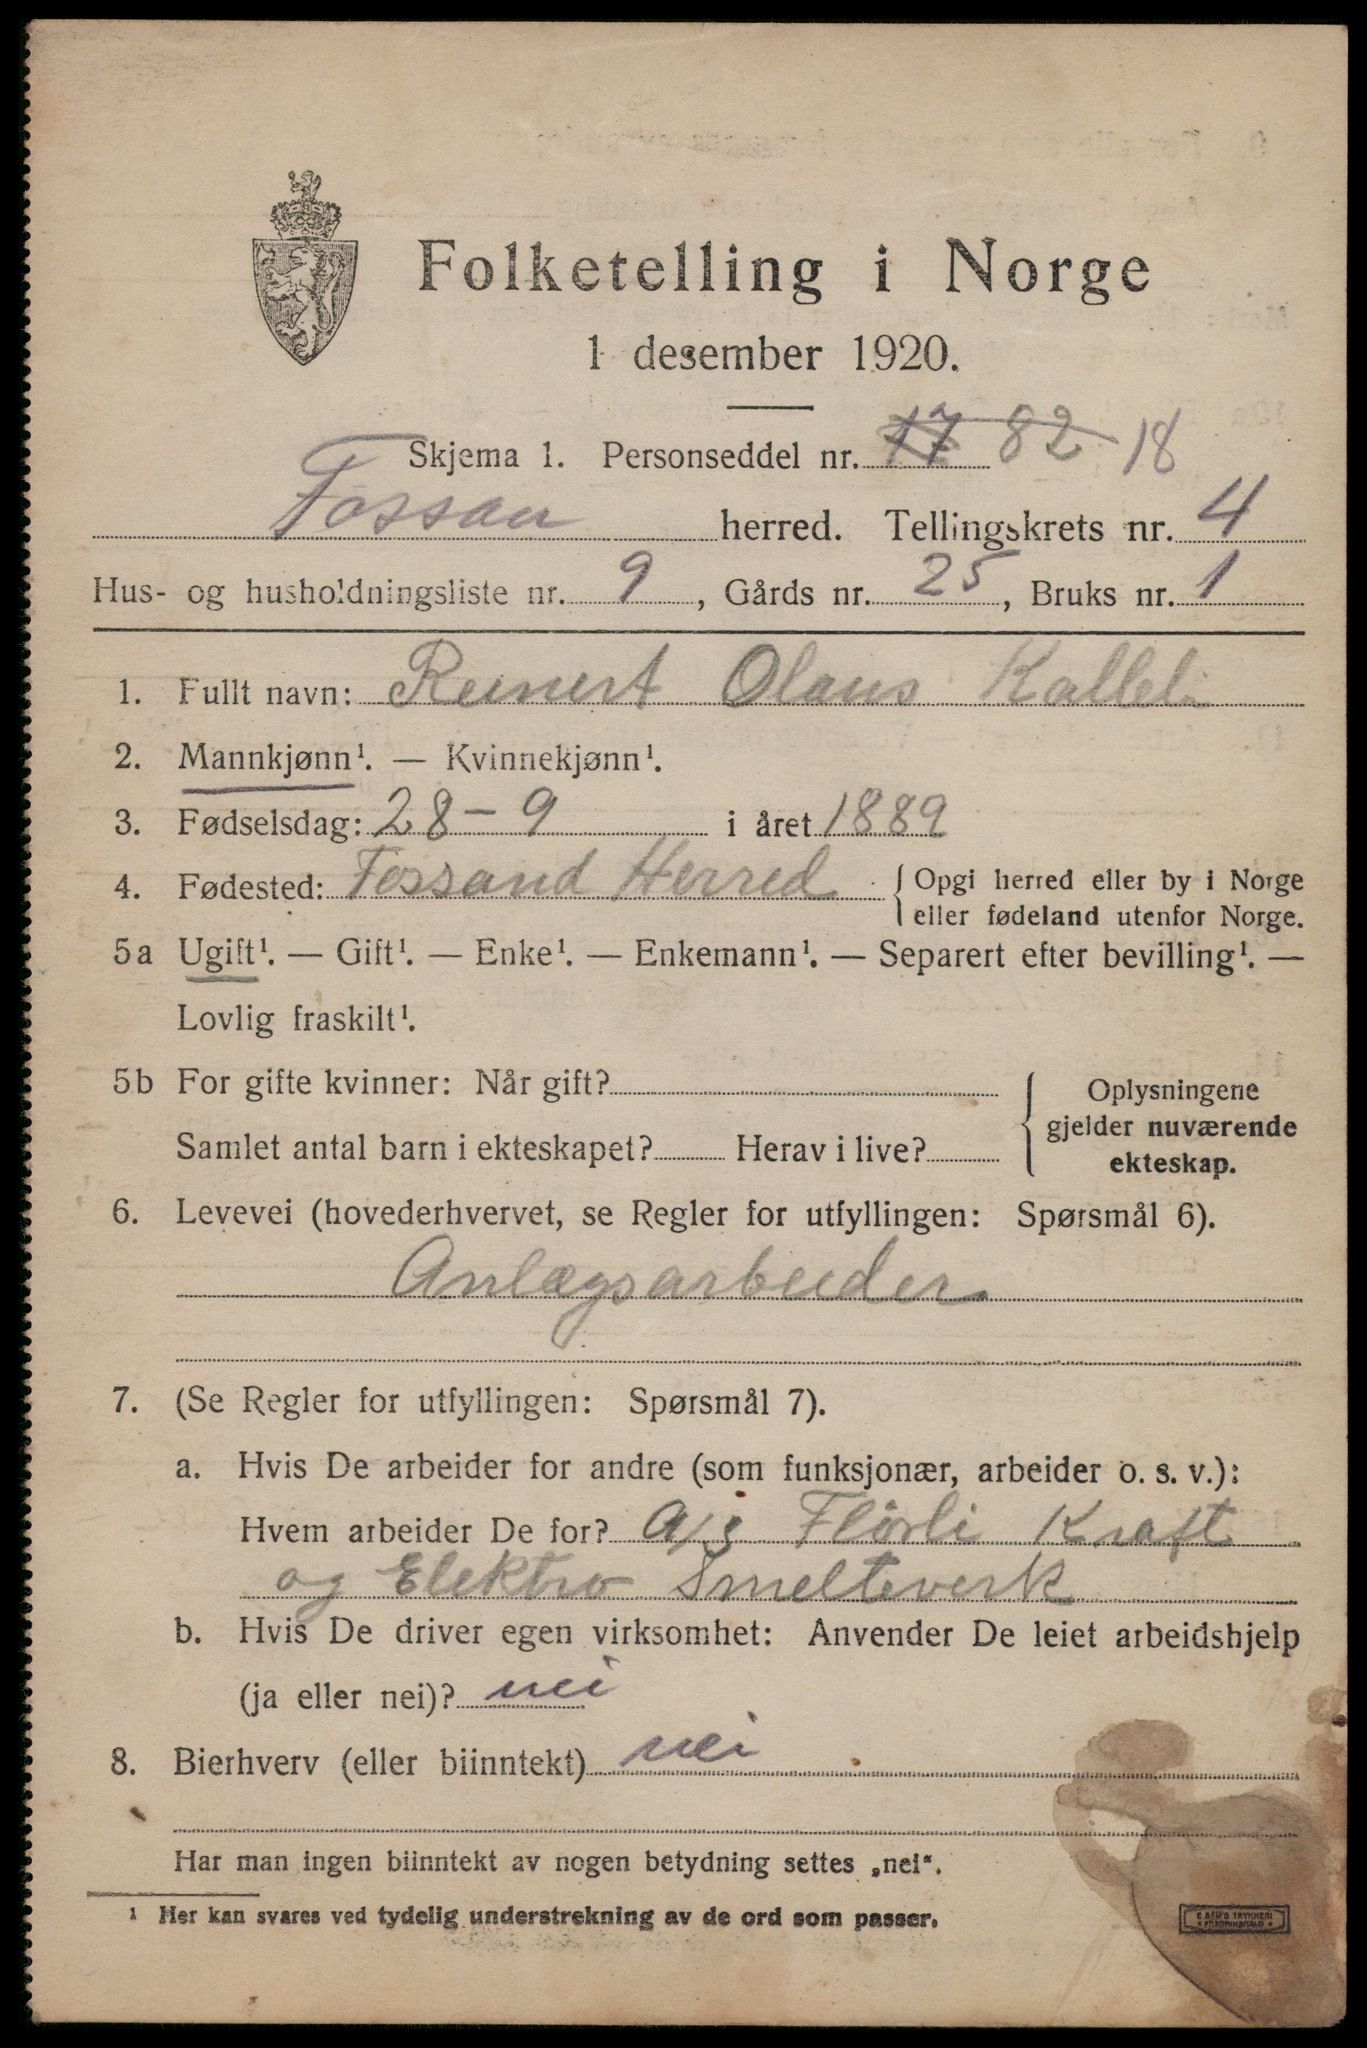 Folketelling i Norge
1 desember 1920.
Skjema 1. Personseddel nr. 17 82 18
Fossan herred. Tellingskrets nr. 4
Hus- og husholdningsliste nr. 9, Gårds nr. 25, Bruks nr. 1
1. Fullt navn: Reinert Olaus Kalleli
2. Mannkjønn¹. — Kvinnekjønn¹.
3. Fødselsdag: 28 - 9 i året 1889
4. Fødested: Fossand Herred { Opgi herred eller by i Norge
eller fødeland utenfor Norge.
5a Ugift¹. — Gift¹. — Enke¹. — Enkemann¹. — Separert efter bevilling¹. —
Lovlig fraskilt¹.
5b For gifte kvinner: Når gift?
Samlet antal barn i ekteskapet? Herav i live?
{ Oplysningene
gjelder nuværende
ekteskap.
6. Levevei (hovederhvervet, se Regler for utfyllingen: Spørsmål 6).
Anlægsarbeider
7. (Se Regler for utfyllingen: Spørsmål 7).
a. Hvis De arbeider for andre (som funksjonær, arbeider o. s. v.):
Hvem arbeider De for? A/S Flörli Kraft
og Elektro Smelteverk
b. Hvis De driver egen virksomhet: Anvender De leiet arbeidshjelp
(ja eller nei)? nei
8. Bierhverv (eller biinntekt) nei
Har man ingen biinntekt av nogen betydning settes „nei“.
¹ Her kan svares ved tydelig understrekning av de ord som passer.
TRYKKERI
FREDRIKSHALD